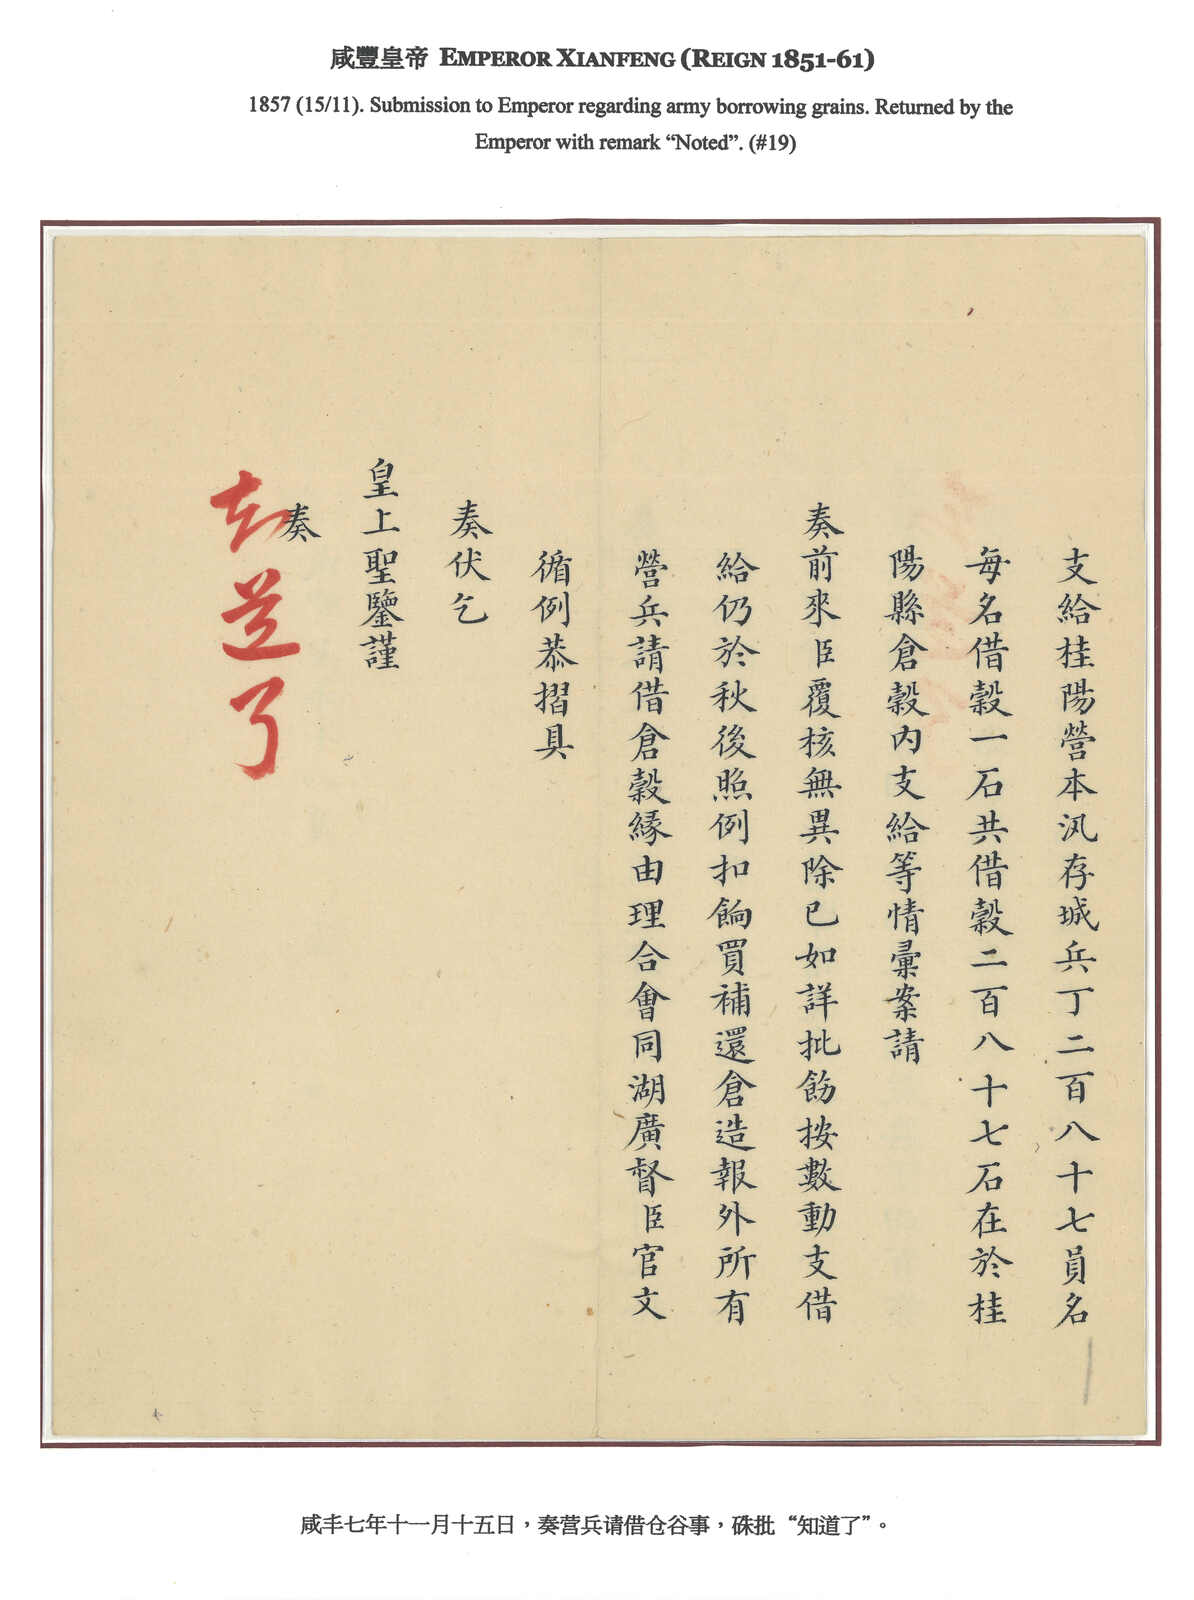 咸豐皇帝 EMPEROR XIANFENG (REIGN 1851-61)
1857 (15/11). Submission to Emperor regarding army borrowing grains. Returned by the
Emperor with remark “Noted”. (#19)
支給桂陽營本汛存城兵丁二百八十七員名
每名借穀一石共借穀二百八十七石在於桂
陽縣倉穀內支給等情彙案請
奏前來臣覆核無異除已如詳批飭按數動支借
給仍於秋後照例扣餉買補還倉造報外所有
營兵請借倉穀緣由理合會同湖廣督臣官文
循例恭摺具
奏伏乞
皇上聖鑒謹
奏
知道了
咸丰七年十一月十五日，奏营兵请借仓谷事，硃批“知道了”。